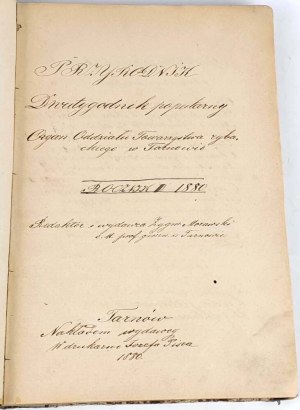 PRZYRODNIK
Dwutygodnik popularny
Organ Oddziału Towarzystwa ryba-
ckiego w Tarnowie
ROCZNIK II 1880
Redaktor i wydawca Zygm. Morawski
prof. gimn. w Tarnowie
Tarnów
Nakładem wydawcy
W drukarni Józefa Pisza
1880.